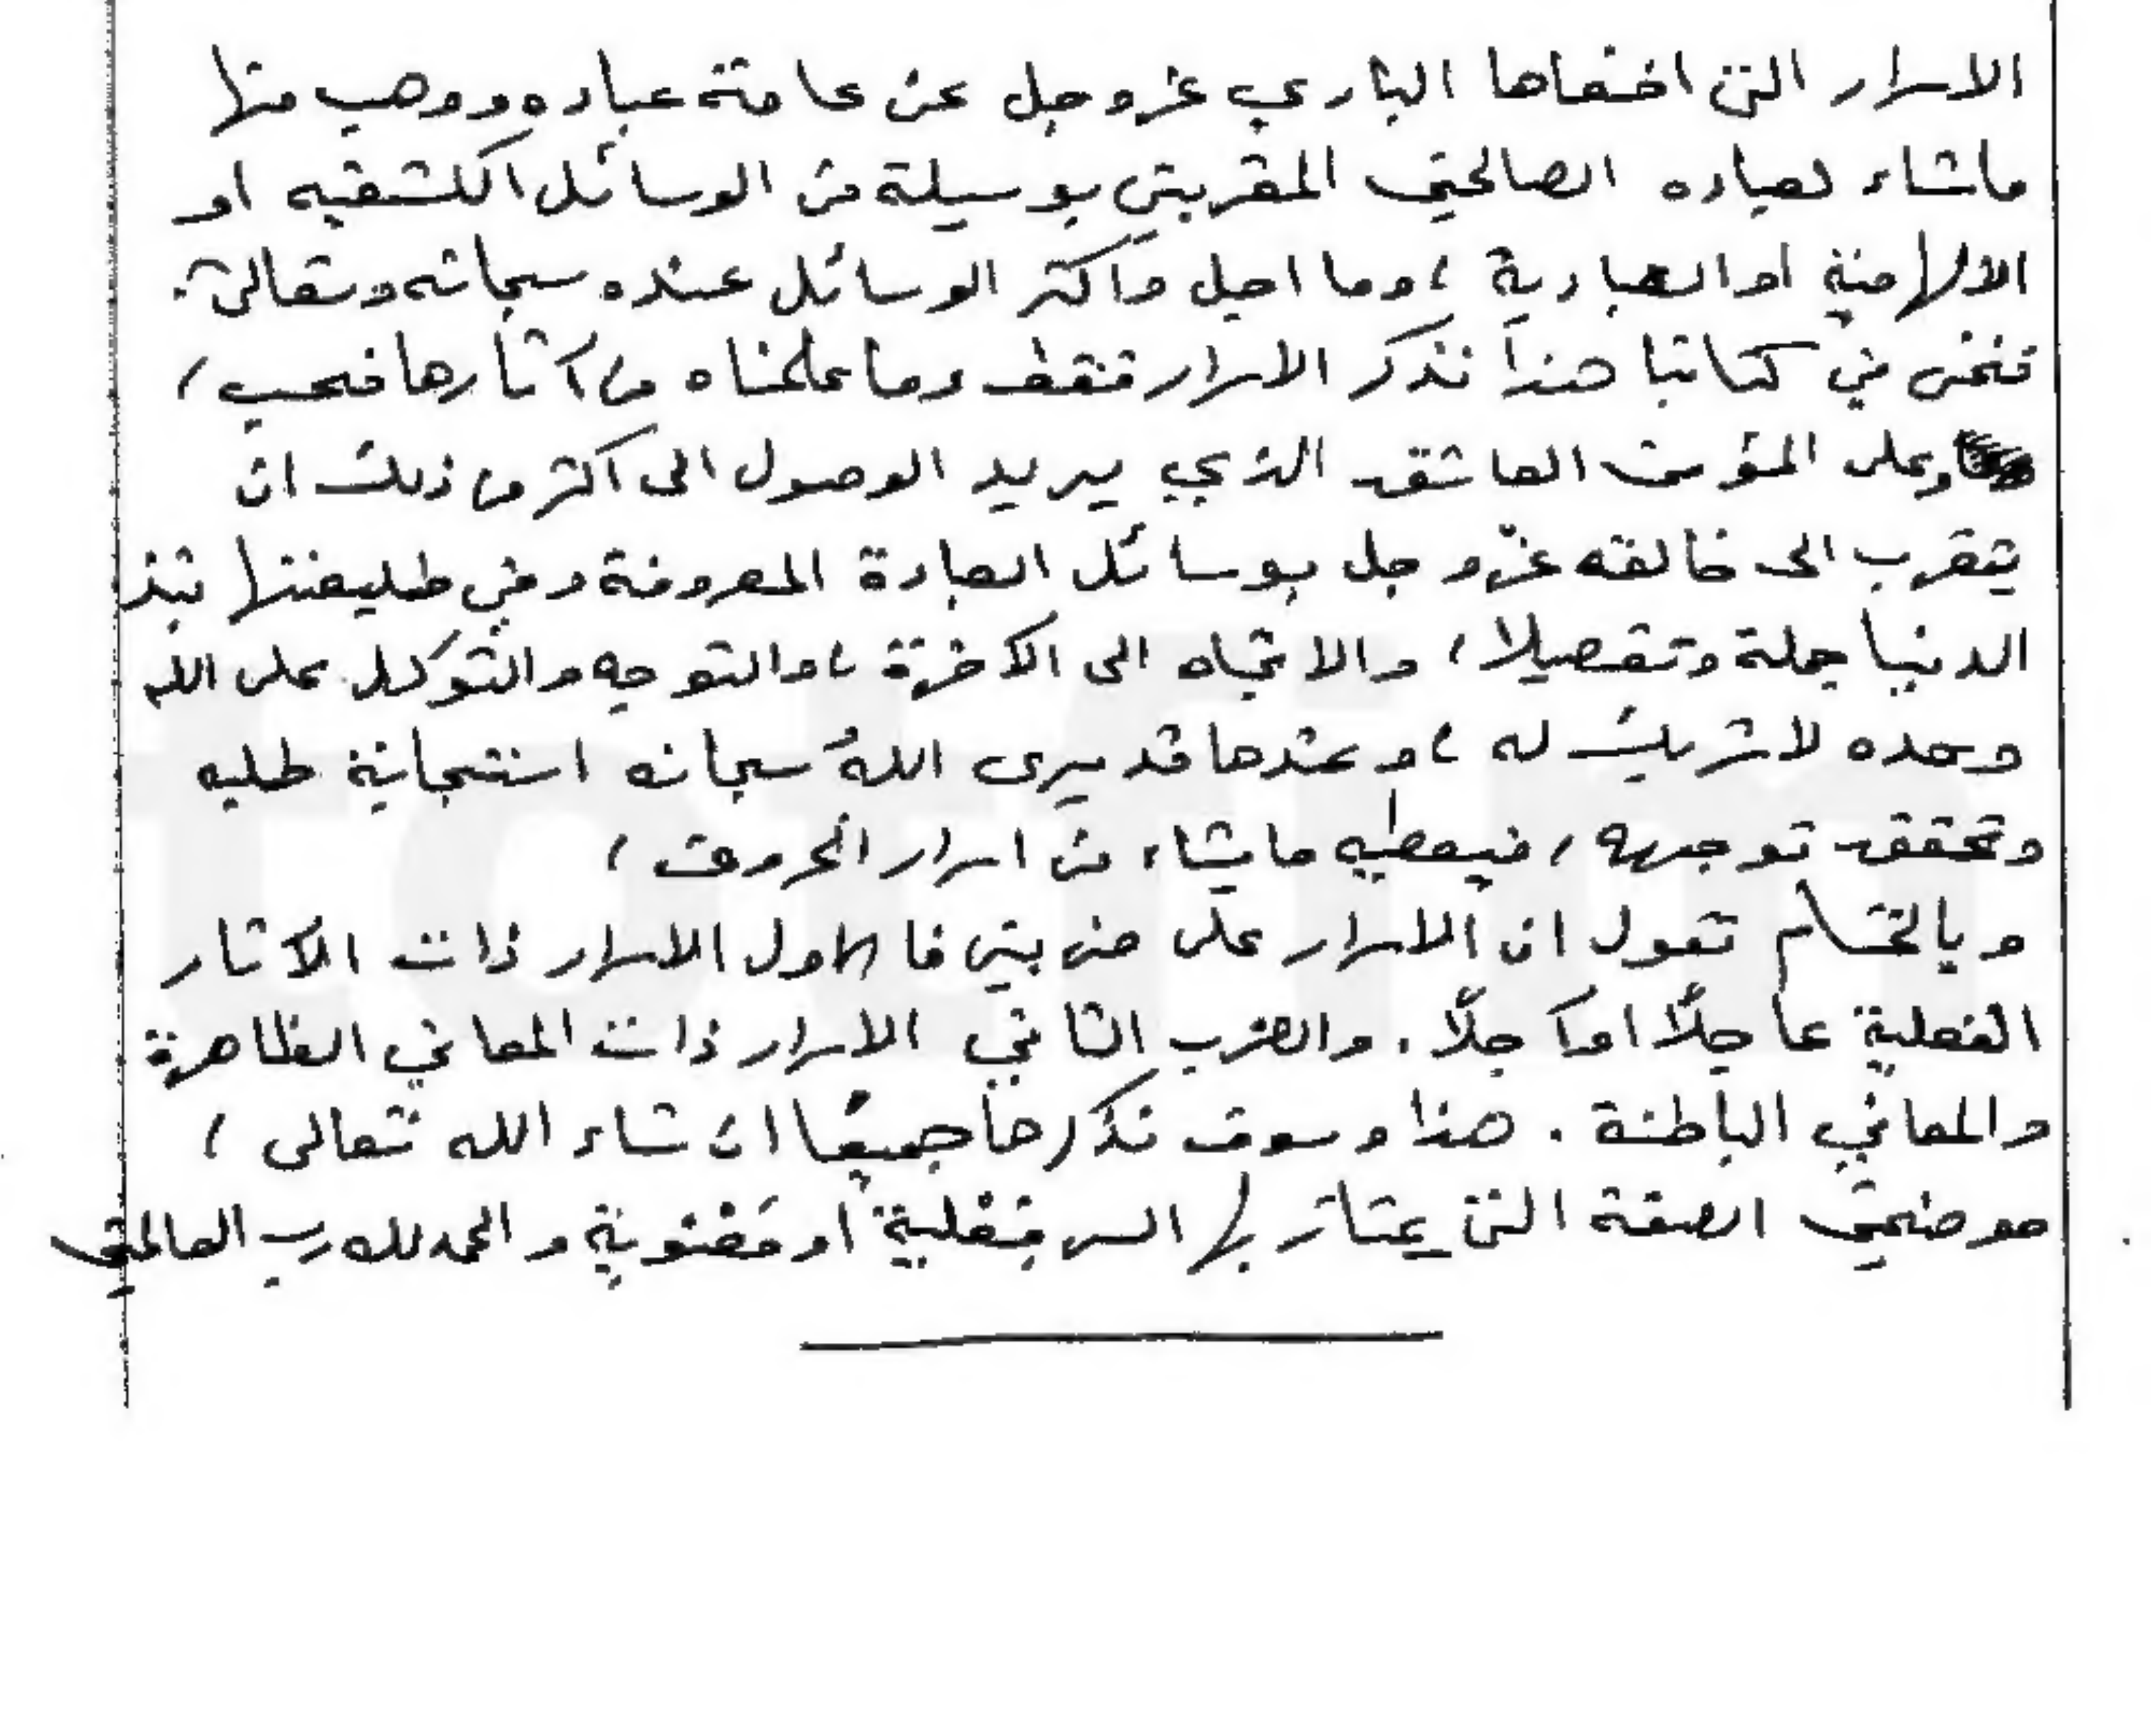 الاسرار التي اخفاها الباري عز وجل عن عامة عباده ووهب منها
ماشاء لعباده الصالحين المقربين بوسيلة من الوسائل الكشفيه او
الالهامية او العبادية ، وما اجل واكثر الوسائل عنده سبحانه وتعالى .
فنحن في كتابنا هذا نذكر الاسرار فقط وما علمناه من آثارها فحسب ،
وعلى المؤمن العاشق الذي يريد الوصول الى اكثر من ذلك ان
يتقرب الى خالقه عزّ وجل بوسائل العبادة المعروفة وفي طليعتها نبذ
الدنيا جملة وتفصيلا ، والاتجاه الى الآخرة ، والتوجه والتوكل على الله
وحده لا شريك له ، وعندها قد يرى اللهُ سبحانه استجابة طلبه
وتحقق توجهه ، فيعطيه ما يشاء من اسرار الحروف ،
وبالختام نقول ان الاسرار على ضربين فالاول الاسرار ذات الآثار
الفعلية عاجلاً او آجلاً . والضرب الثاني الاسرار ذات المعاني الظاهرة
والمعاني الباطنة . هذا وسوف نذكرها جميعًا ان شاء الله تعالى ،
موضحين الصفة التي يمتاز بها السر فِعْلية أو مَعْنوية والحمد لله رب العالمين